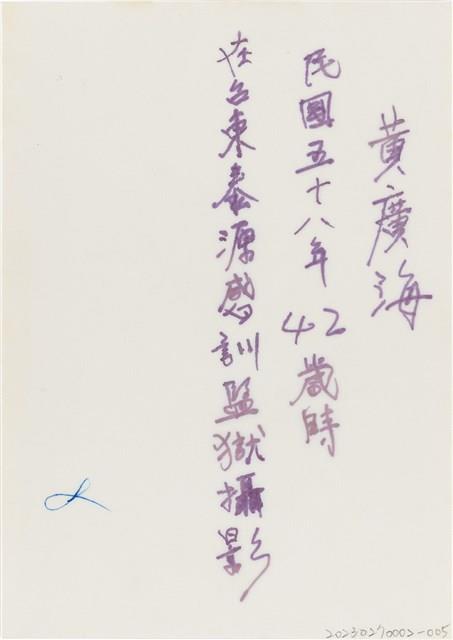 黃廣海
民國五十八年 42歲時
在台東泰源感訓監獄攝影
20230270002-005